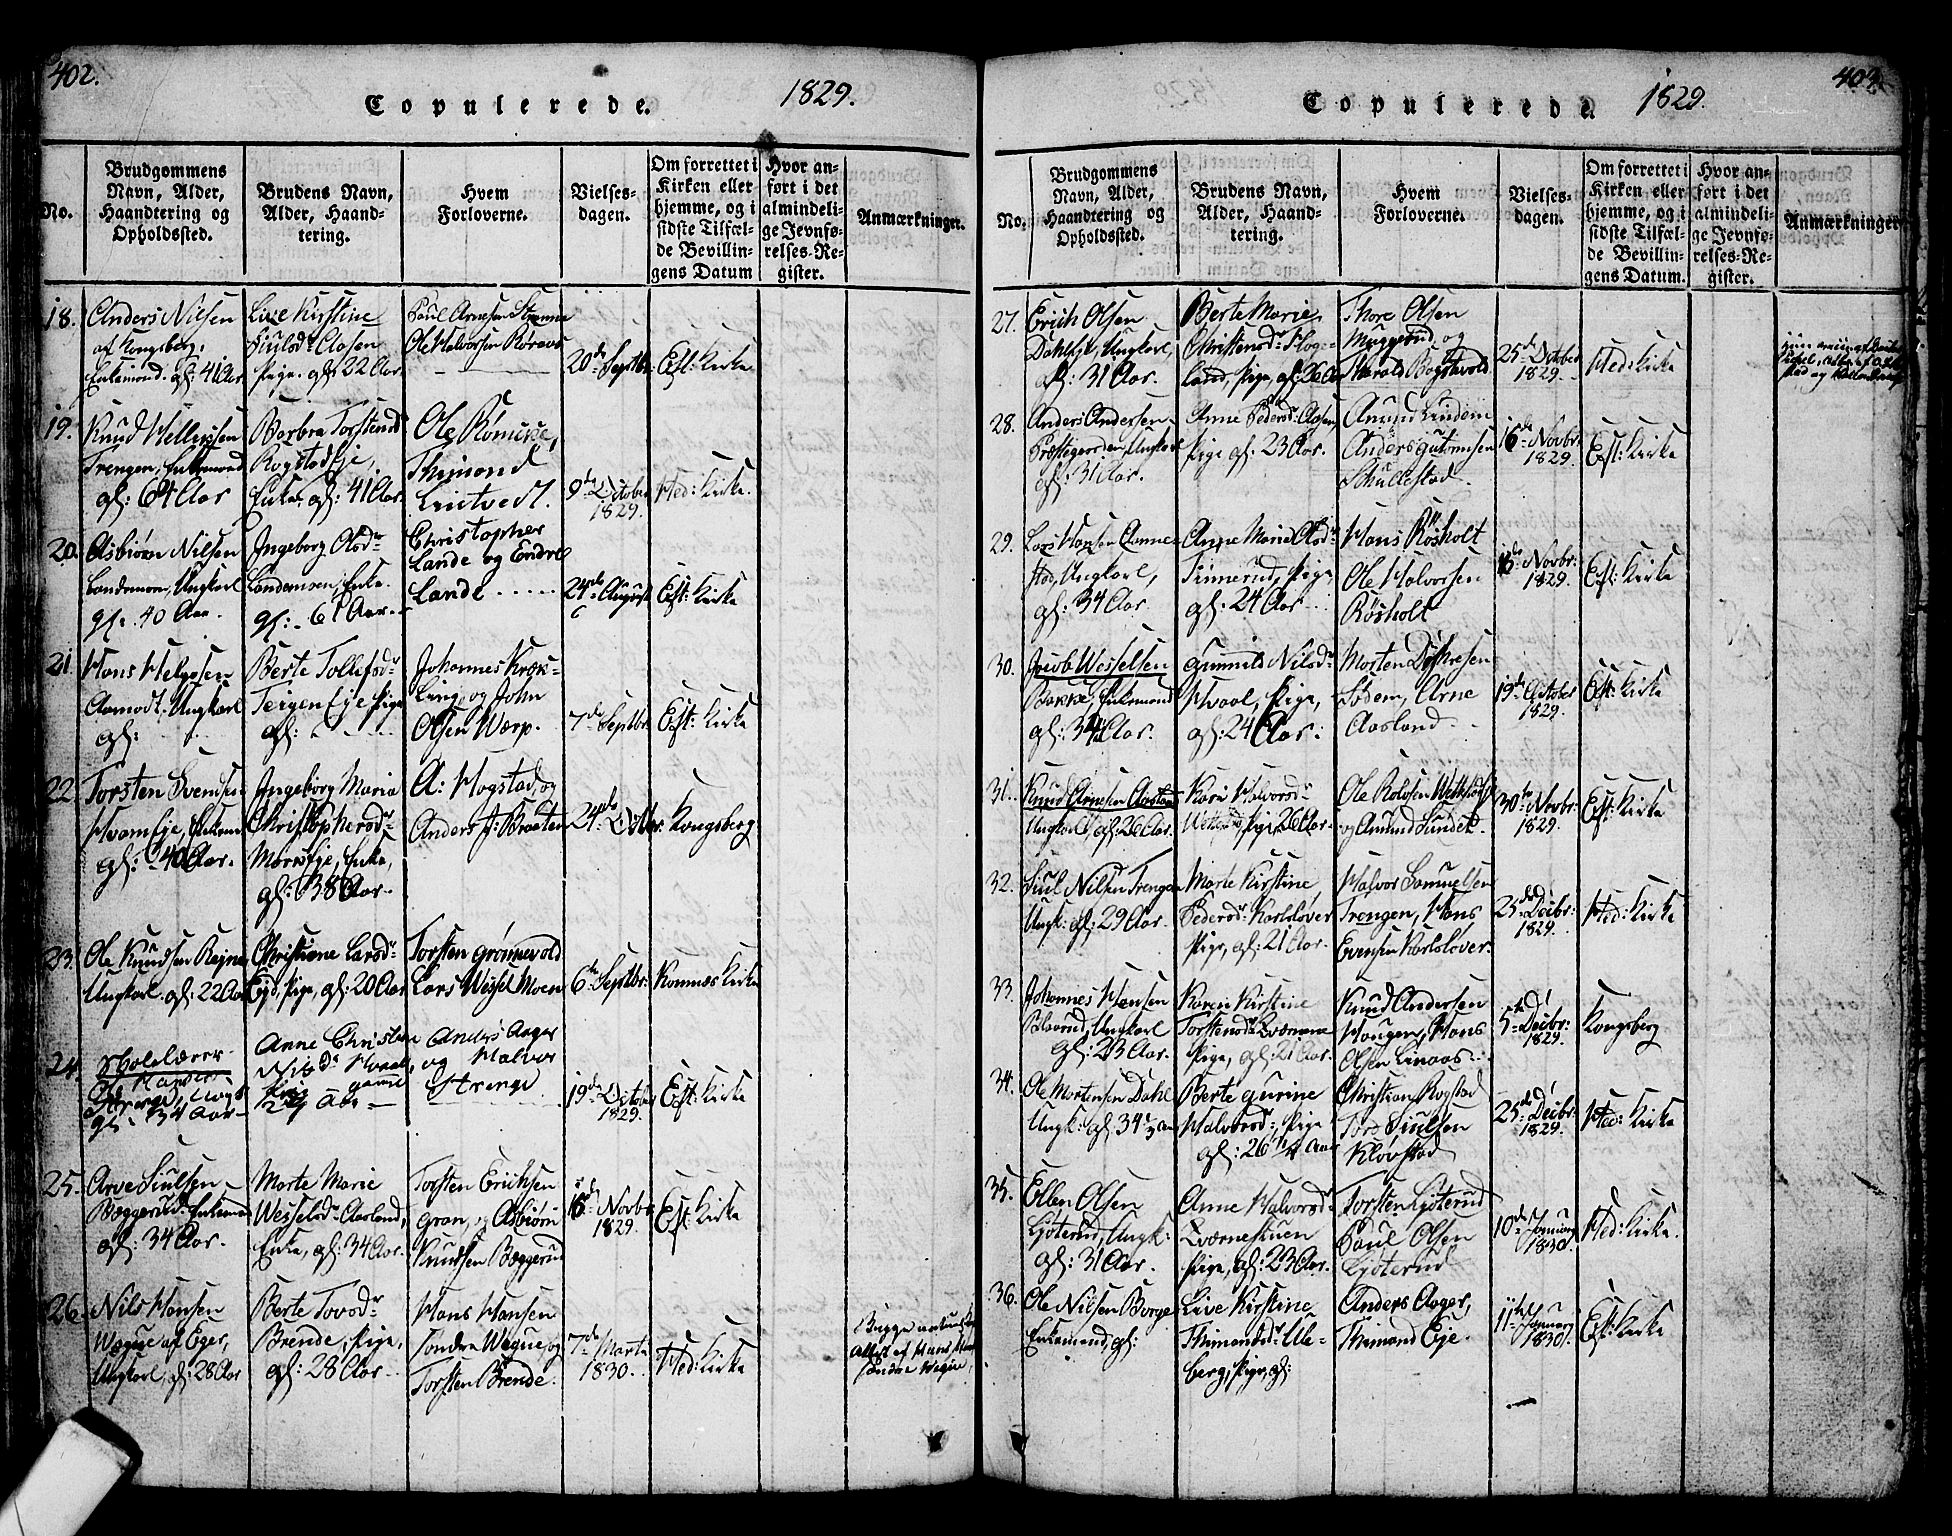 402.
Copulerede. 1829.
No.
Brudgommens
Navn, Alder,
Haandtering og
Opholdssted.
Brudens Navn,
Alder, Haand-
tering.
Hvem
Forloverne.
Vielses-
dagen.
Om forrettet i
Kirken eller
hjemme, og i
sidste Tilfæl-
de Bevillin-
gens Datum
Hvor an-
ført i det
almindeli-
ge Jevnfø-
relses-Re-
gister.
Anmærkninger.
18.
Anders Nilsen
af Kongsberg,
Enkemand. gl: 41 Aar
Live Kirstine
Siulsdr Aasen
Pige. gl: 22 Aar
Paul Arnesen
Ole Halvorsen
20de Septbr:
Eft: Kirke
19.
Knud Hellissen
Trengen, Enkemand
gl: 64 Aar
Barbra Torstensd
Rogstadeje,
Enke, gl: 41 Aar.
Ole
Thimand
Lintvedt.
9de October
1829.
Hed: Kirke.
20.
Asbiørn Nilsen
Landemoen, Ungkarl
gl. 40 Aar.
Ingeborg Olsdr
Landemoen, Enke
gl: 61 Aar.
Christopher
Lande og Endre
Lande
24de August
Eft: Kirke
21.
Hans Helgesen
Aamodt. Ungkarl
gl:
Berte Tollefsdr
Teigen Eje Pige
gl:
Johannes Kræk-
ling, og John
Olsen Wærp.
7de Septbr:
Eft: Kirke
22.
Torsten Svendsen
Hvam Eje, Enkem
gl: 40 Aar.
Ingeborg Maria
Christophersdr
Moens Eje, Enke,
gl: 38 Aar.
A: Hogstad, og
Anders J: Braaten
24de Octbr
Kongsberg
23.
Ole Knudsen
Ungkarl. gl: 22 Aar
Christiane Larsdr
Eje, Pige, gl: 20 Aar
Torsten Grønnevold
Lars Wessel Moen
6te Septbr:
Komnæs Kirke
24.
Skolelærer
Ole Hansen
Strenge, Ungk
gl. 34 Aar
Anne Christine
Pige
29 Aar
Anders Aager
og Halvor
Strenge
19de October
1829.
Eft: Kirke
25.
Arve Siulsen
Bæggerud, Enkemand
gl: 34 Aar.
Marte Marie
Wesselsdr Aasland,
Enke, gl: 34 Aar.
Torsten Erichsen
Gran, og Asbiørn
Knudsen Bæggerud
Novbr
1829.
Eft: Kirke
26.
Nils Hansen
Wægue af Eger,
Ungkarl, gl: 28 Aar
Berte Tovsdr
Brende, Pige,
gl: 28 Aar.
Hans Hansen
Tondra Wegue, og
Torsten Brende.
7de Marts
1830.
Hed: Kirke
Begge
Attest af Hans
Wegue,
403.
Copulerede. 1829.
No.
Brudgommens
Navn, Alder,
Haandtering og
Opholdssted.
Brudens Navn,
Alder, Haand-
tering.
Hvem
Forloverne.
Vielses-
dagen.
Om forrettet i
Kirken eller
hjemme, og i
sidste Tilfæl-
de Bevillin-
gens Datum.
Hvor an-
ført i det
almindeli-
ge Jevnfø-
relses-Re-
gister.
Anmærkninger
27.
Erich Olsen
Dahleje, Ungkarl,
gl: 31 Aar.
Berte Marie
Christensdr Hog-
land, Pige, gl: 26 Aar
Thore Olsen
Muggerud og
Harald Bogstvold
25de October
1829.
Hed: Kirke
28.
Anders Andersen
Præstegorden, Ungkarl
gl: 31 Aar.
Anne Pedersdr Aasen,
Pige gl: 23 Aar.
Amund Lindem
Anders Gutormsen
Skullestad.
16de Novbr:
1829.
Eft: Kirke
29.
Lars Hansen
Ungkarl,
gl: 34 Aar.
Anne Marie Olsdr
Trinerud, Pige,
gl: 24 Aar
Hans Røsholt
Ole Halvorsen
Røsholt
Novbr:
1829.
Eft: Kirke
30.
Jacob Wesselsen
Bakke, Enkemand
gl: 34 Aar.
Gunnild Nilsdr
Hvaal, Pige,
gl: 24 Aar.
Morten
Sødem, Arne
Aasland
19de October
1829.
Eft: Kirke
31.
Knud Arnesen Aasland
Ungkarl, gl: 26 Aar.
Kari Halvorsdr
Pige, 26 Aar.
Ole Rolvsen
og Amund Sundet.
30te Novbr:
1829.
Eft: Kirke
32.
Siul Nilsen Trengen
Ungk: gl: 29 Aar.
Marte Kirstine
Pedersdr Karlsløver
Pige, gl: 21 Aar.
Halvor Samuelsen
Trengen, Hans
Evensen Karlsløver.
25de Decbr:
1829.
Hed: Kirke
33.
Johannes Hansen
Blaarud, Ungkarl
gl: 23 Aar.
Karen Kirstine
Torstensdr Qværnene
Pige, gl: 21 Aar.
Knud Andersen
Hougen, Hans
Olsen Linaas
5te Decbr:
1829.
Kongsberg
34.
Ole Mortensen Dahl
Ungk: gl 34
Berte Gurine
Halvorsdr, Pige
gl: 26 1/4 Aar
Christian Rogstad
Tor Siulsen
Kløvstad
25de Decbr:
1829.
Hed: Kirke
35.
Ellen Olsen
Gjøterud, Ungk:
gl: 31 Aar.
Anne Halvorsdr
Qværnestuen
Pige, gl: 23 Aar.
Torsten Gjøterud
Paul Olsen
Gjøterud
10de Januar
1830.
Hed: Kirke.
36.
Ole Nilsen Borge
Enkemand, gl:
Live Kirstine
Thimandsdr Ule-
berg, Pige, gl:
Anders Aager,
Thimand Eje.
11te Januar
1830.
Eft: Kirke